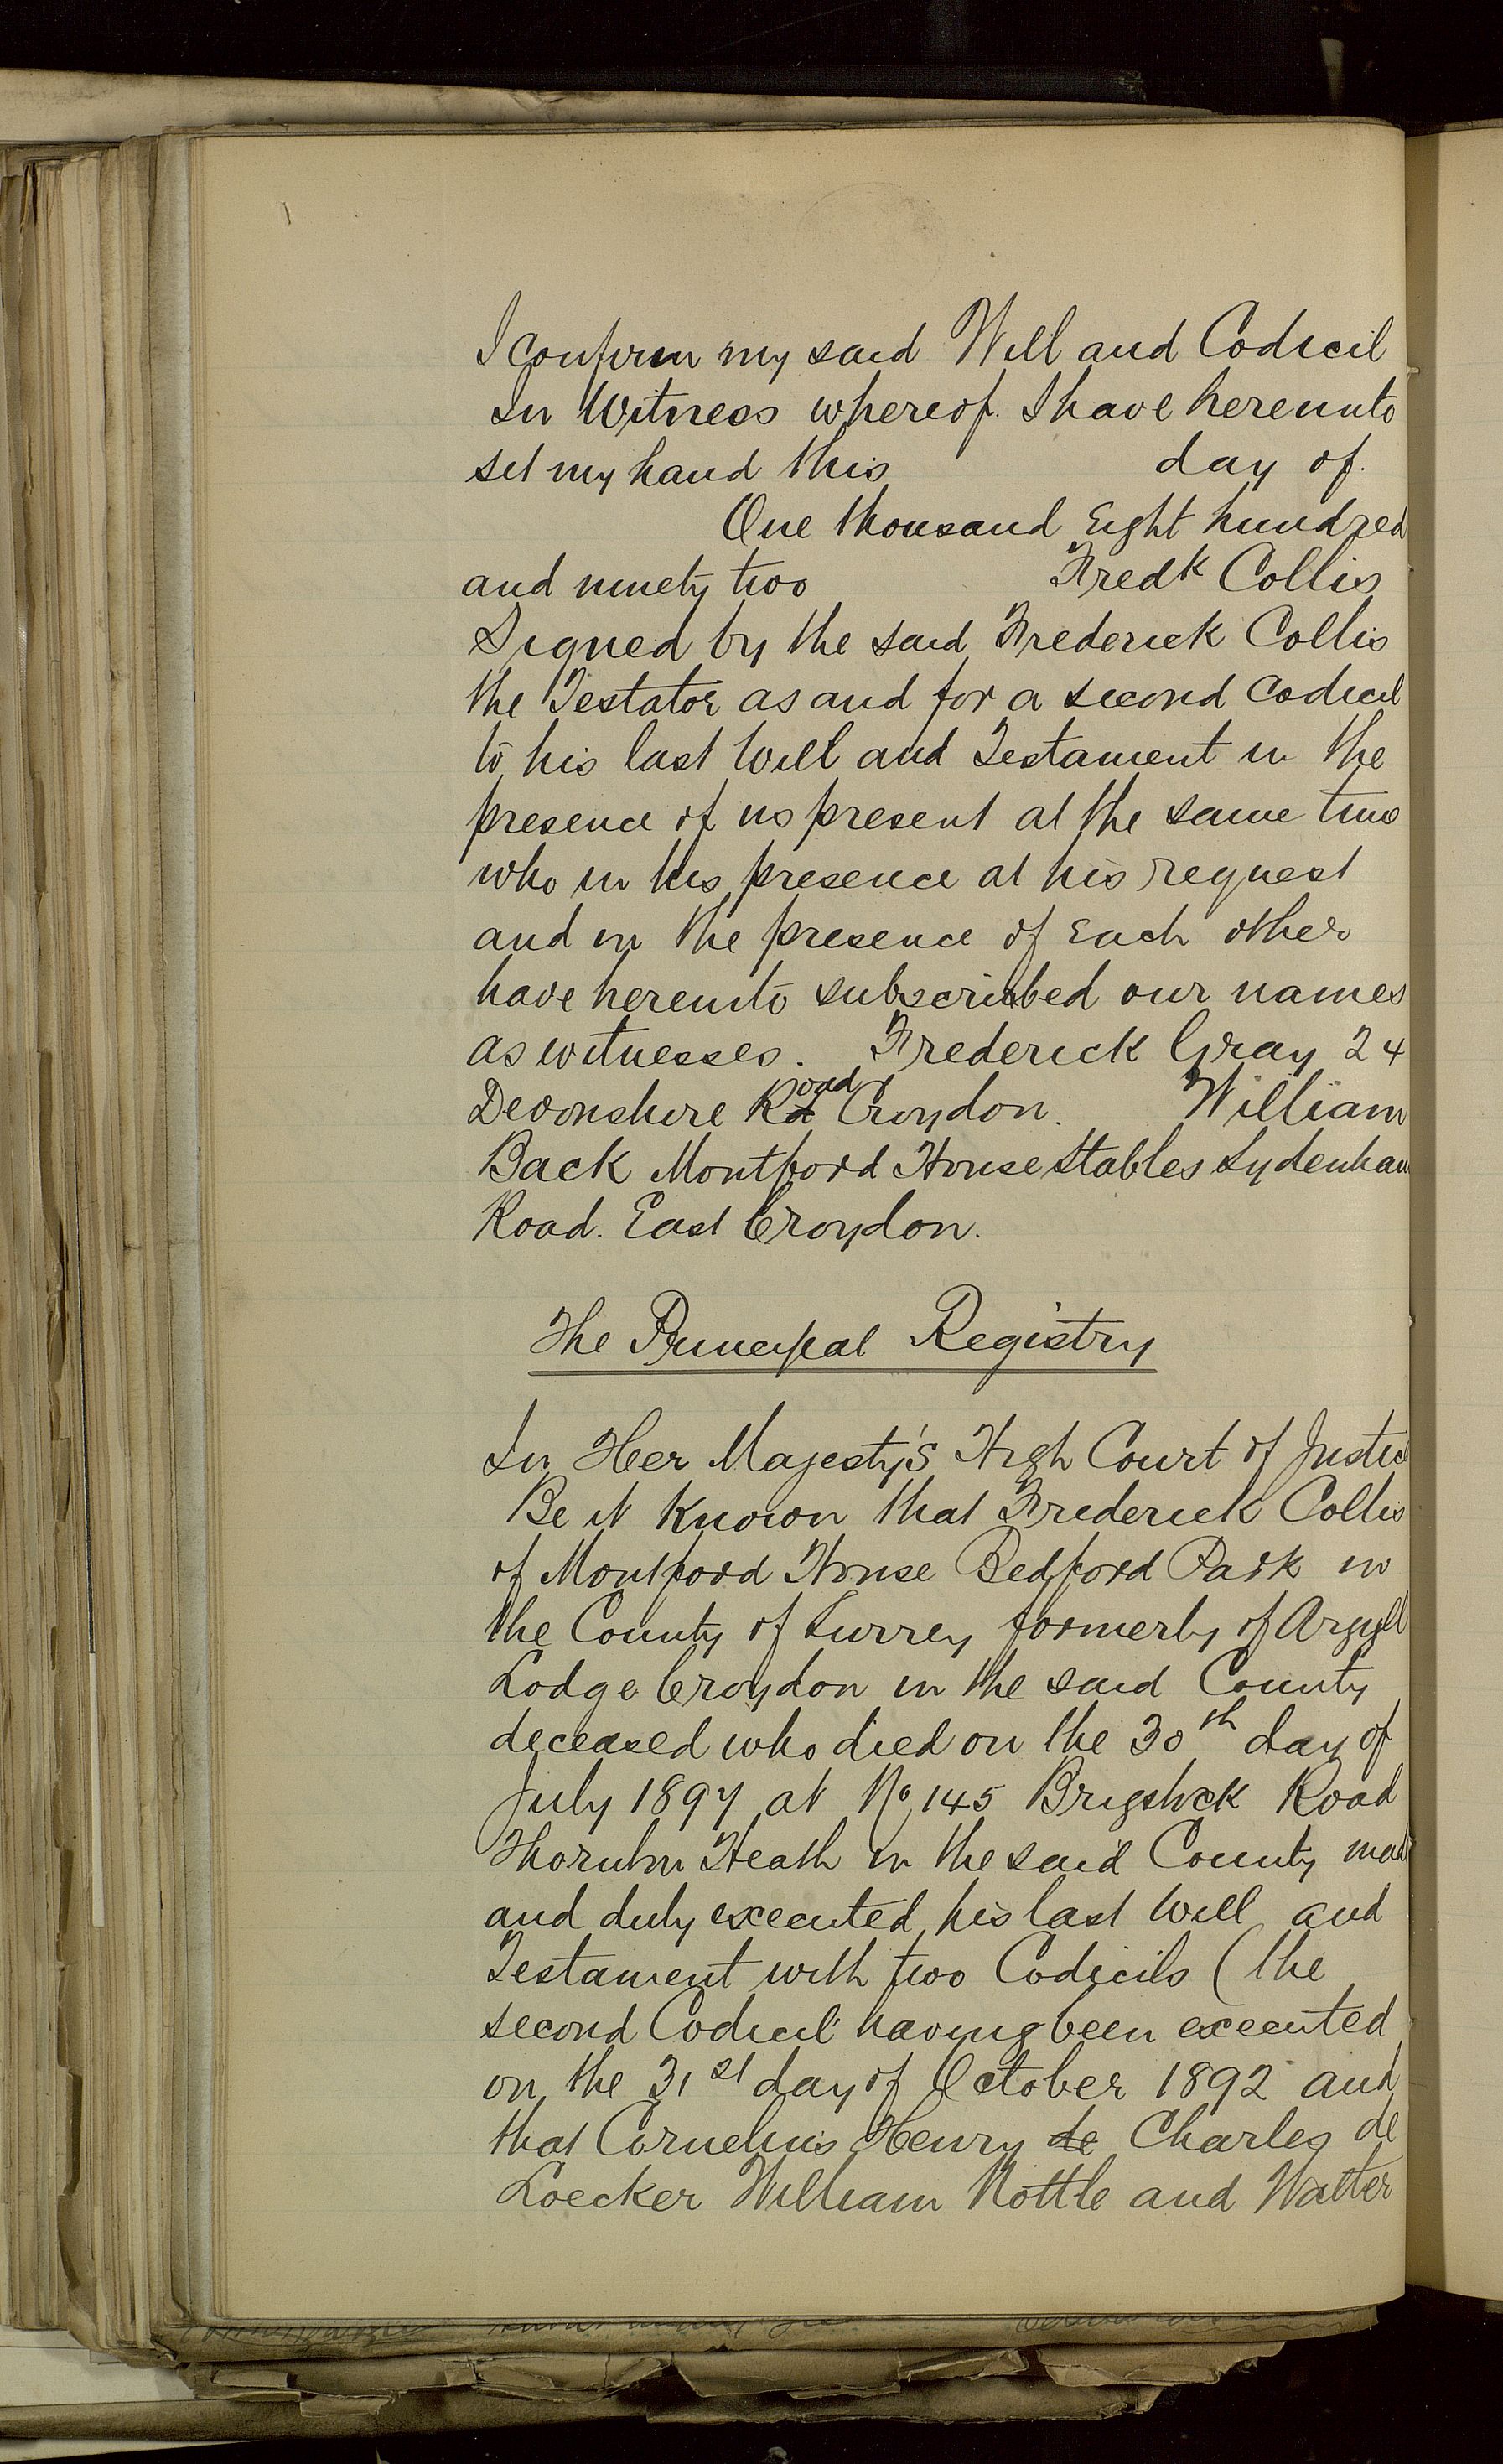 I confirm my said Will and Codicil
In Witness whereof. I have hereunto
set my hand this day of.
One thousand Eight hundred
and ninety two Fredk Collis
Signed by the said Frederick Collis
the Testator as and for a second Codicil
to his last Will and Testament in the
presence of us present at the same time
who in his presence at his request
and in the presence of Each other
have hereunto subscribed our names
as witnesses. Frederick Gray 24
Devonshire Road Croydon. William
Back Montford House Stables Sydenham
Road. East Croydon.
The Principal Registry
In Her Majesty's High Court of Justice
Be it Known that Frederick Collis
of Montford House Bedford Park in
the County of Surrey formerly of Argyll
Lodge Croydon in the said County
deceased who died on the 30th day of
July 1897 at No 145 Brigstock Road
Thornton Heath in the said County mad
and duly executed his last Will and
Testament with two Codicils (the
second Codicil having been executed
on the 31st day of October 1892 and
that Cornelius Henry de Charles de
Loecker William Nottle and Walter